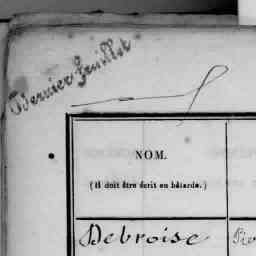 Dernier feuillet
NOM.
(Il doit être écrit en bâtarde.)
Debroise